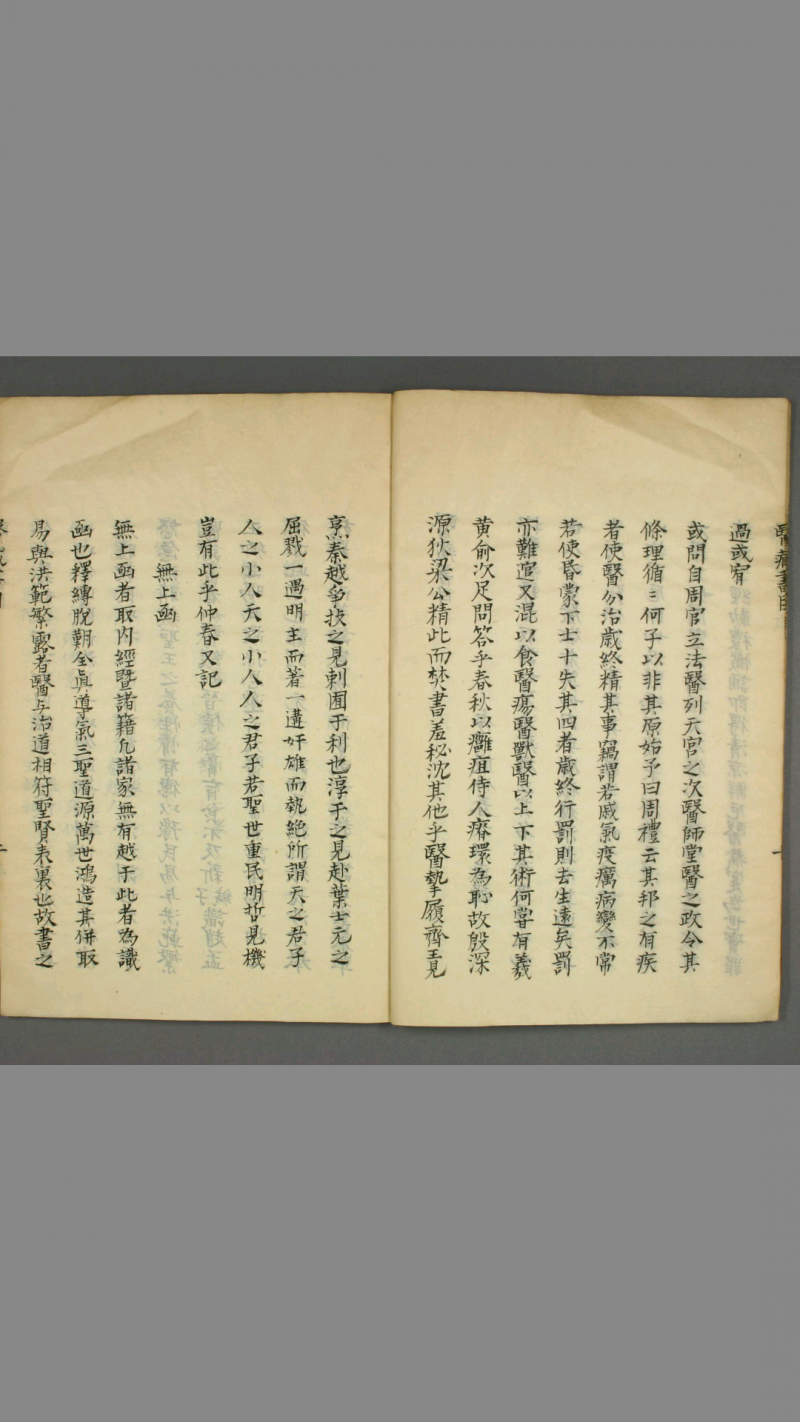 醫藏書目
過或宥
或問自周官立法醫列天官之次醫師堂醫之政令其
條理循〻何子以非其原始予曰周禮云其邦之有疾
者使醫分治歲終精其事竊謂若戚氣疫癘病變不常
若使昏蒙下士十失其四者歲終行罰則去生遠矣罰
亦難逭又混以食醫瘍醫獸醫以上下其術何嘗有羲
黃俞次足問答乎春秋以癰疽侍人瘠環為恥故殷深
源狄梁公精此而焚書羞秘沈其他乎醫摯履齊王見
烹秦越爭技之見刺囿于利也淳于之見赴葉士元之
屈戮一遇明主而著一遘奸雄而埶絶所謂天之君子
人之小人天之小人人之君子若聖世重民明哲見機
豈有此乎仲春又記
無上函
無上函者取内經暨諸籍凡諸家無有越于此者為識
函也釋縛脫艱全眞導氣三聖道源萬世鴻造其併取
易與洪範繁露者醫与治道相符聖賢表裏也故書之